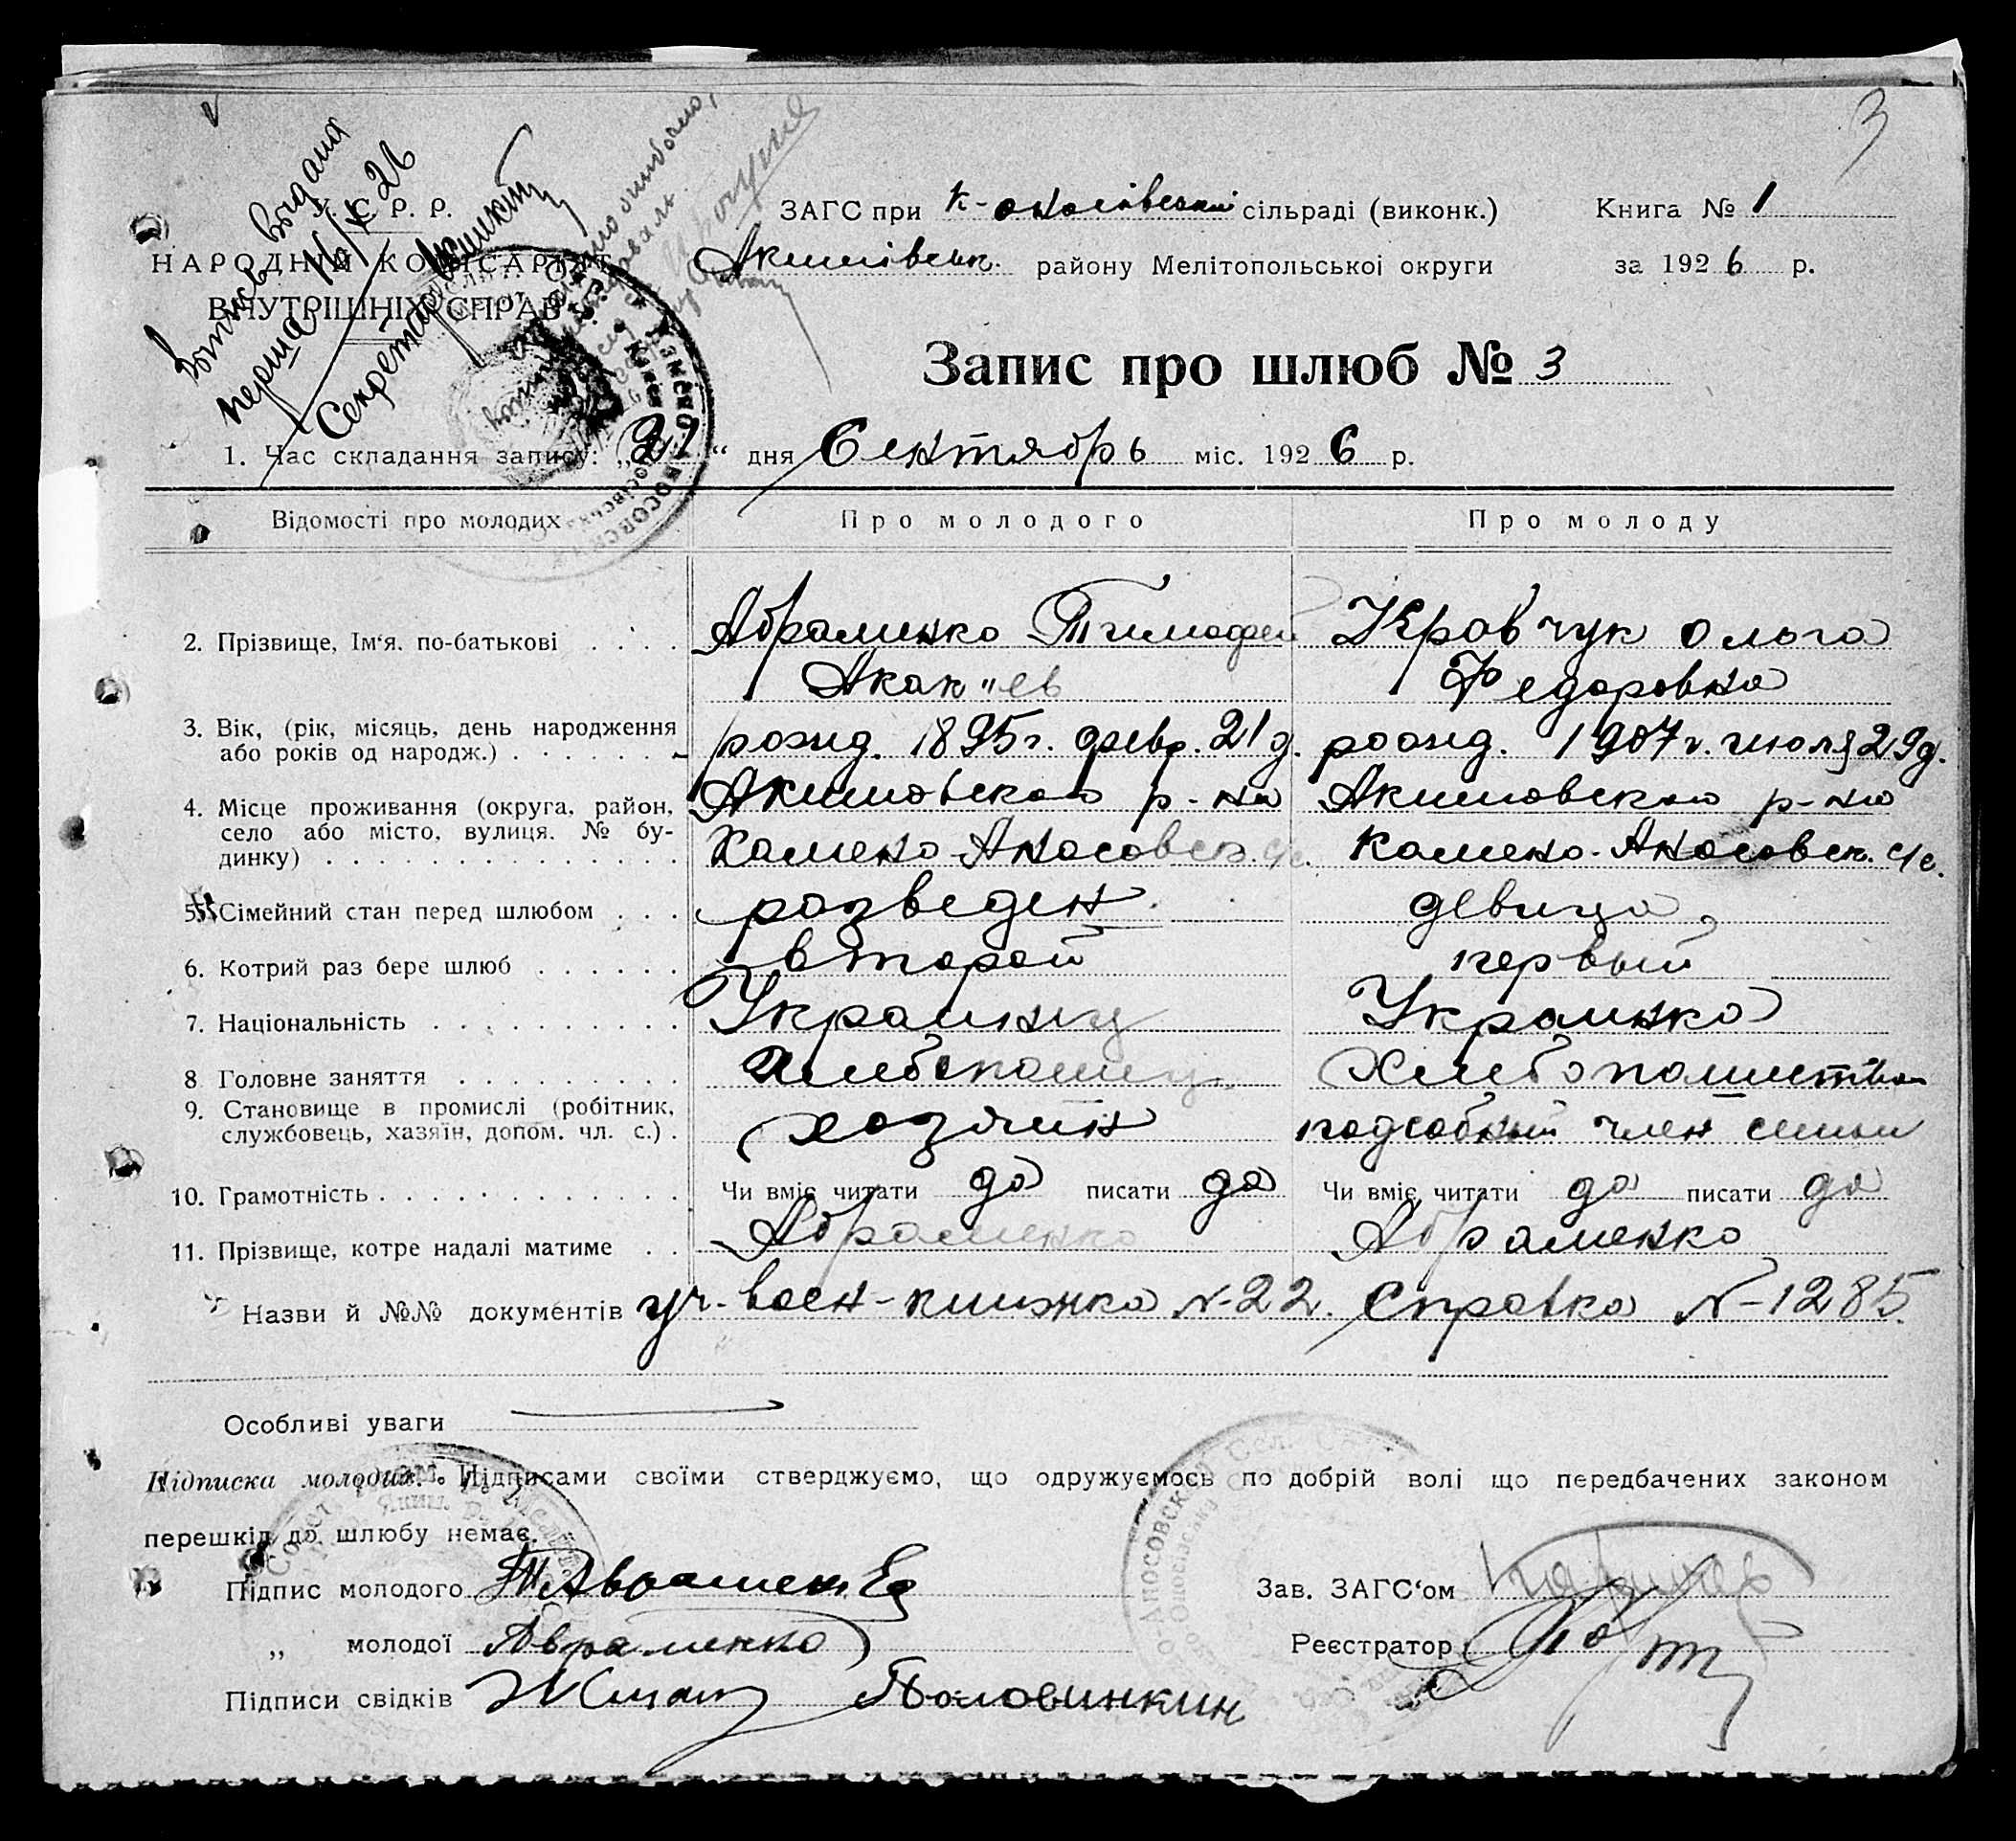 3
Выпись выдана
перша 16/X 26
Секретарь
У. С. Р. Р.
НАРОДНІЙ КОМІСАРІЯТ
ВНУТРІШНІХ СПРАВ
ЗАГС при К-Оносівський сільраді (виконк.) Книга № 1
Акимівськ. району Мелітопольської округи за 1926 р.
Запис про шлюб № 3
1. Час складання запису: „21“ дня Сентябрь міс. 1926 р.
Відомості про молодих Про молодого Про молоду
2. Прізвище, Ім'я. по-батькові . . . . Абраменко Тимофей Кравчук Ольга
Акакиев Федоровна
3. Вік, (рік, місяць, день народження рожд. 1895 г. февр. 21 д. рожд. 1907 г. июля 29 д.
або років од народж.) . . . . . .
4. Місце проживання (округа, район, Акимовского р-на Акимовского р-на
село або місто, вулиця. № бу- Камено-Аносовск. с/с. Камено-Аносовск. с/с.
динку) . . . . . . . . . . . . .
5. Сімейний стан перед шлюбом . . . разведен девица
6. Котрий раз бере шлюб . . . . . . второй первый
7. Національність . . . . . . . . . . Украинец Украинка
8 Головне заняття . . . . . . . . . Хлебопашец Хлебопашество
9. Становище в промислі (робітник, хозяин подсобный член семьи
службовець, хазяїн, допом. чл. с.) .
10. Грамотність . . . . . . . . . . . . Чи вміє читати да писати да Чи вміє читати да писати да
11. Прізвище, котре надалі матиме . . Абраменко Абраменко
Назви й №№ документів уч-воен-книжка N-22. Справка N-1285.
Особливі уваги
Підписка молодих. Підписами своїми стверджуємо, що одружуємось по добрій волі що передбачених законом
перешкід до шлюбу немає.
Підпис молодого Т Авраменко Зав. ЗАГС'ом
„ молодої Авраменко Реєстратор
Підписи свідків Половинкин